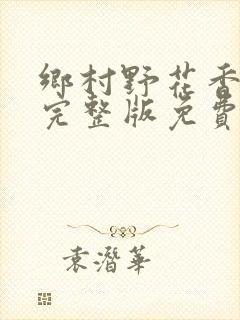 鄉村野花香
完整版免費
袁潛華